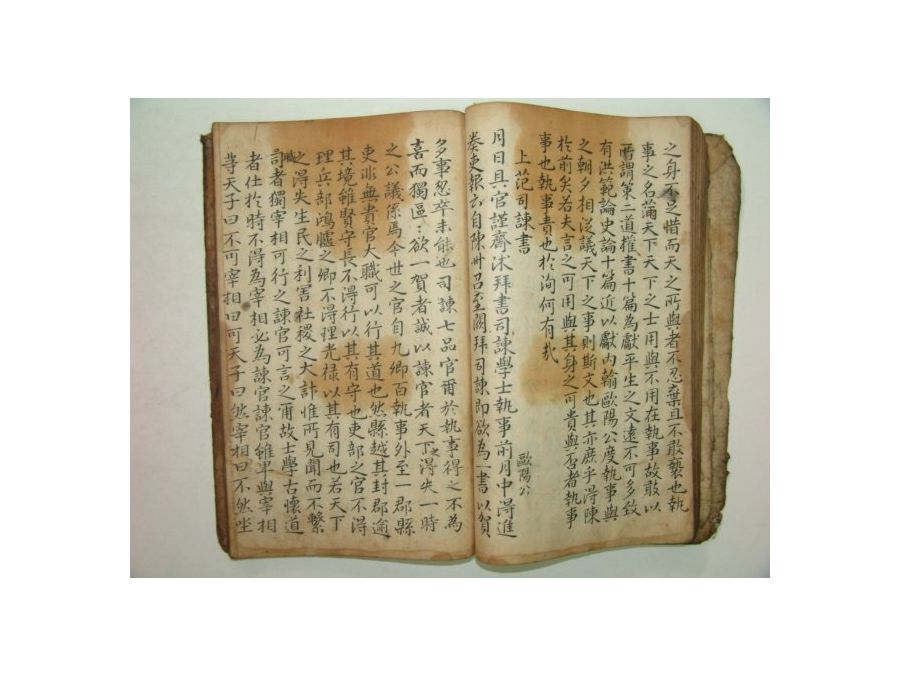 之身不足惜而天之所與者不忍棄且不敢褻也執
事之名滿天下天下之士用與不用在執事故敢以
所謂策二道權書十篇為獻平生之文遠不可多致
有洪範論史論十篇近以獻內翰歐陽公度執事與
之朝夕相從議天下之事則斯文也其亦庶乎得陳
於前矣若夫言之可用與其身之可貴與否者執事
事也執事責也於洵何有哉
上范司諫書
歐陽公
月日具官謹齋沐拜書司諫學士執事前月中得進
奏吏報云自陳州召至闕拜司諫即欲為一書以賀
多事怱卒未能也司諫七品官爾於執事得之不為
喜而獨區〻欲一賀者誠以諫官者天下之得失一時
之公議係焉今世之官自九卿百執事外至一郡縣
吏非無貴官大職可以行其道也然縣越其封郡逾
其境雖賢守長不得行以其有守也吏部之官不得
理兵部鴻臚之卿不得理光祿以其有司也若天下
之得失生民之利害社稷之大計惟所見聞而不繫
職司者獨宰相可行之諫官可言之爾故士學古懷道
者仕於時不得為宰相必為諫官諫官雖卑與宰相
等天子曰不可宰相曰可天子曰然宰相曰不然坐